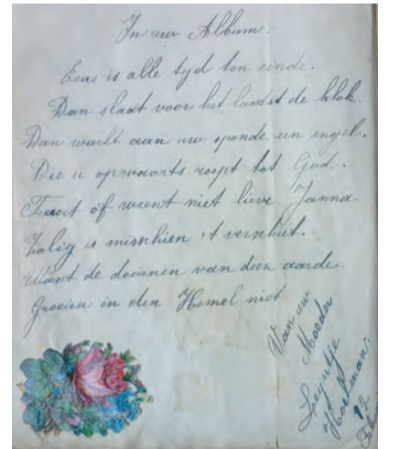 In uw Album.
Eens is alle tyd ten einde.
Dan slaat voor het laatst de klok.
Dan wacht aan uw sponde een engel.
Die u opwaarts roept tot God.
Treurt of weent niet lieve Janna
Zalig is misschien 't verschiet.
Want de doornen van deze aarde.
Groeien in den Hemel niet
Van uw
Moeder
Leyntje